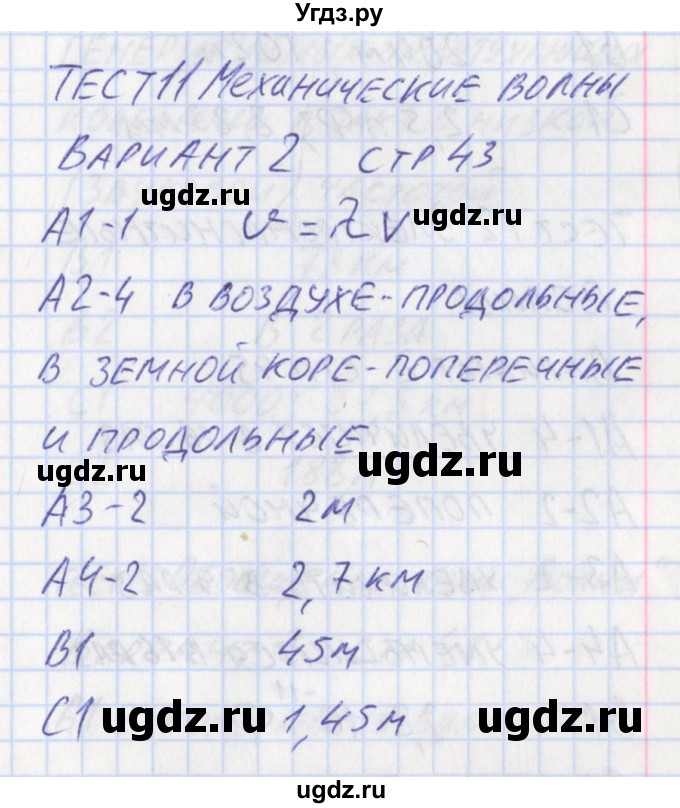 Угдз.ру
ТЕСТ 11 МЕХАНИЧЕСКИЕ ВОЛНЫ
ВАРИАНТ 2 СТР 43
ugdz.ru
А1-1 v = λν ugdz.ru
А2-4 В ВОЗДУХЕ-ПРОДОЛЬНЫЕ,
В ЗЕМНОЙ КОРЕ-ПОПЕРЕЧНЫЕ
И ПРОДОЛЬНЫЕ
ugdz.ru ugdz.ru
А3-2 2м
А4-2 2,7 км
В1 45м
С1 ugdz.ru 1,45м ugdz.ru
ugdz.ru